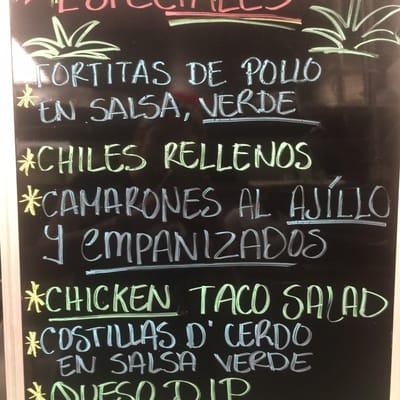 ESPECIALES
TORTITAS DE POLLO
* EN SALSA, VERDE
* CHILES RELLENOS
* CAMARONES AL AJÍLLO
Y EMPANIZADOS
* CHICKEN TACO SALAD
* COSTILLAS D' CERDO
EN SALSA VERDE
* QUESO DIP